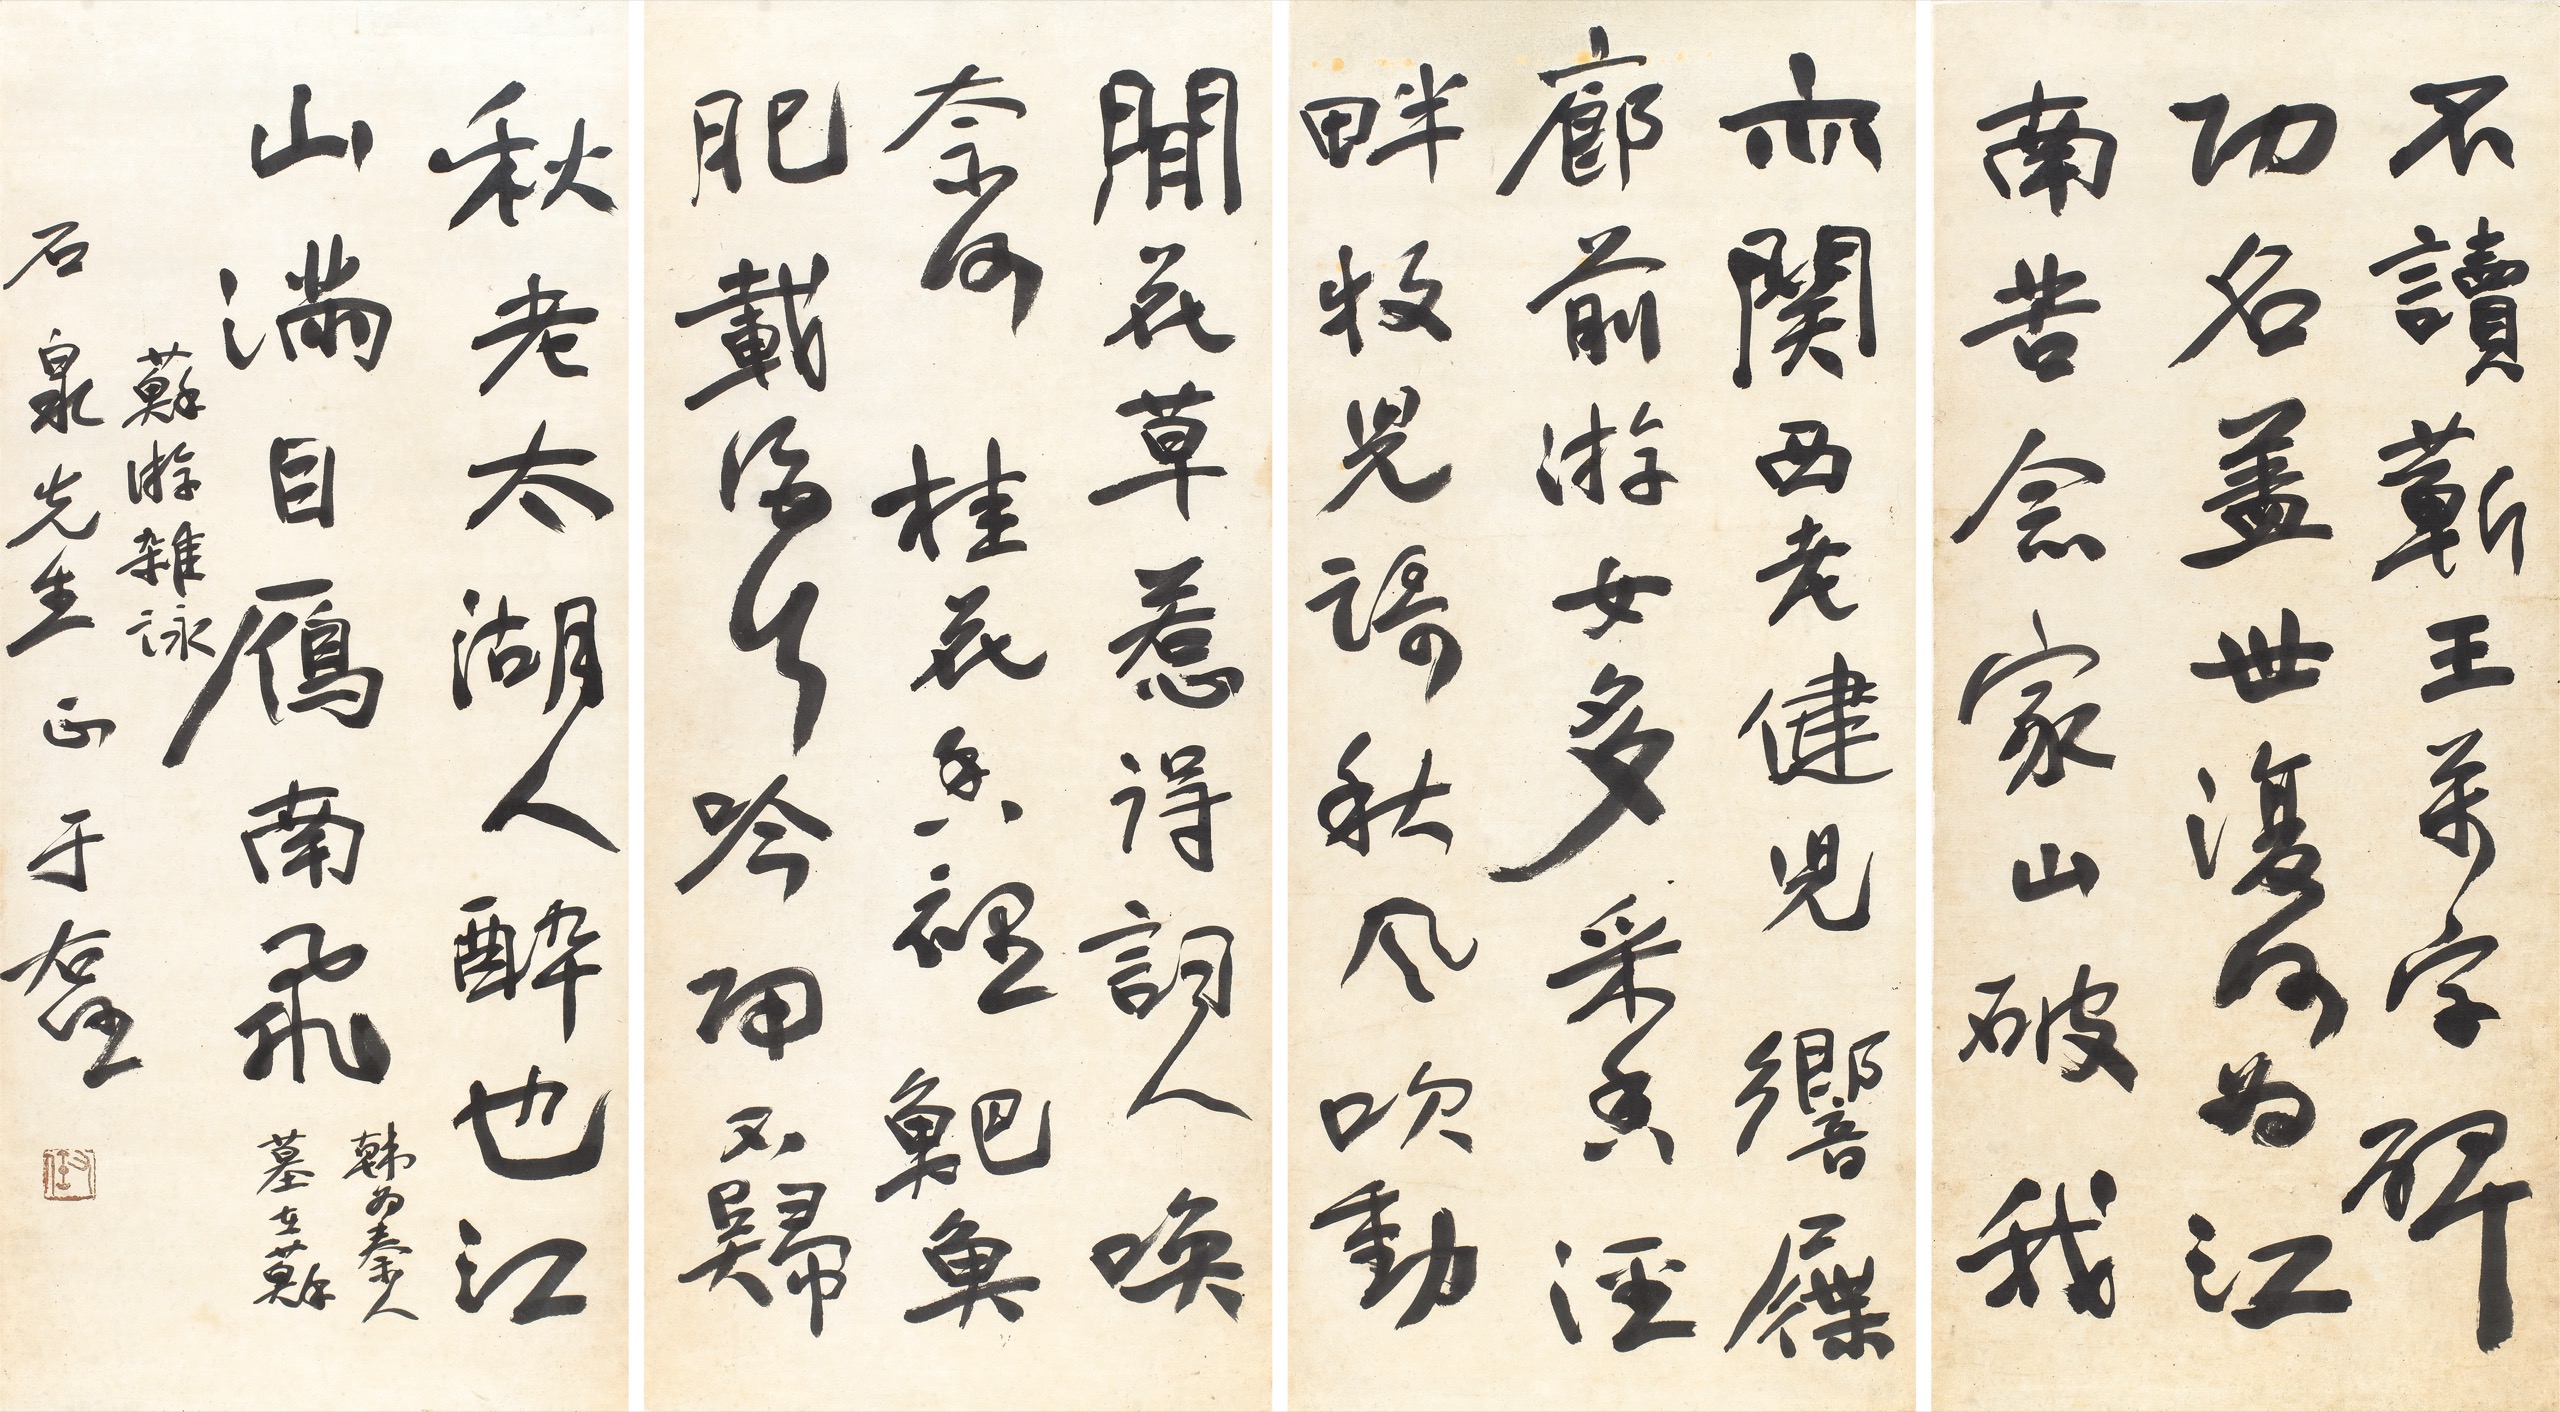 不讀蘄王萬字碑
功名蓋世復何為江
南苦念家山破我
亦關西老健兒 響屧
廊前游女多采香涇
畔牧兒謌秋風吹動
閒花草惹得詞人喚
奈何 桂花香裡䰾魚
肥載酒行吟歸不歸
秋老太湖人醉也江
山滿目鴈南飛
韓為秦人
墓在蘇
蘇游雜詠
石泉先生正于右任